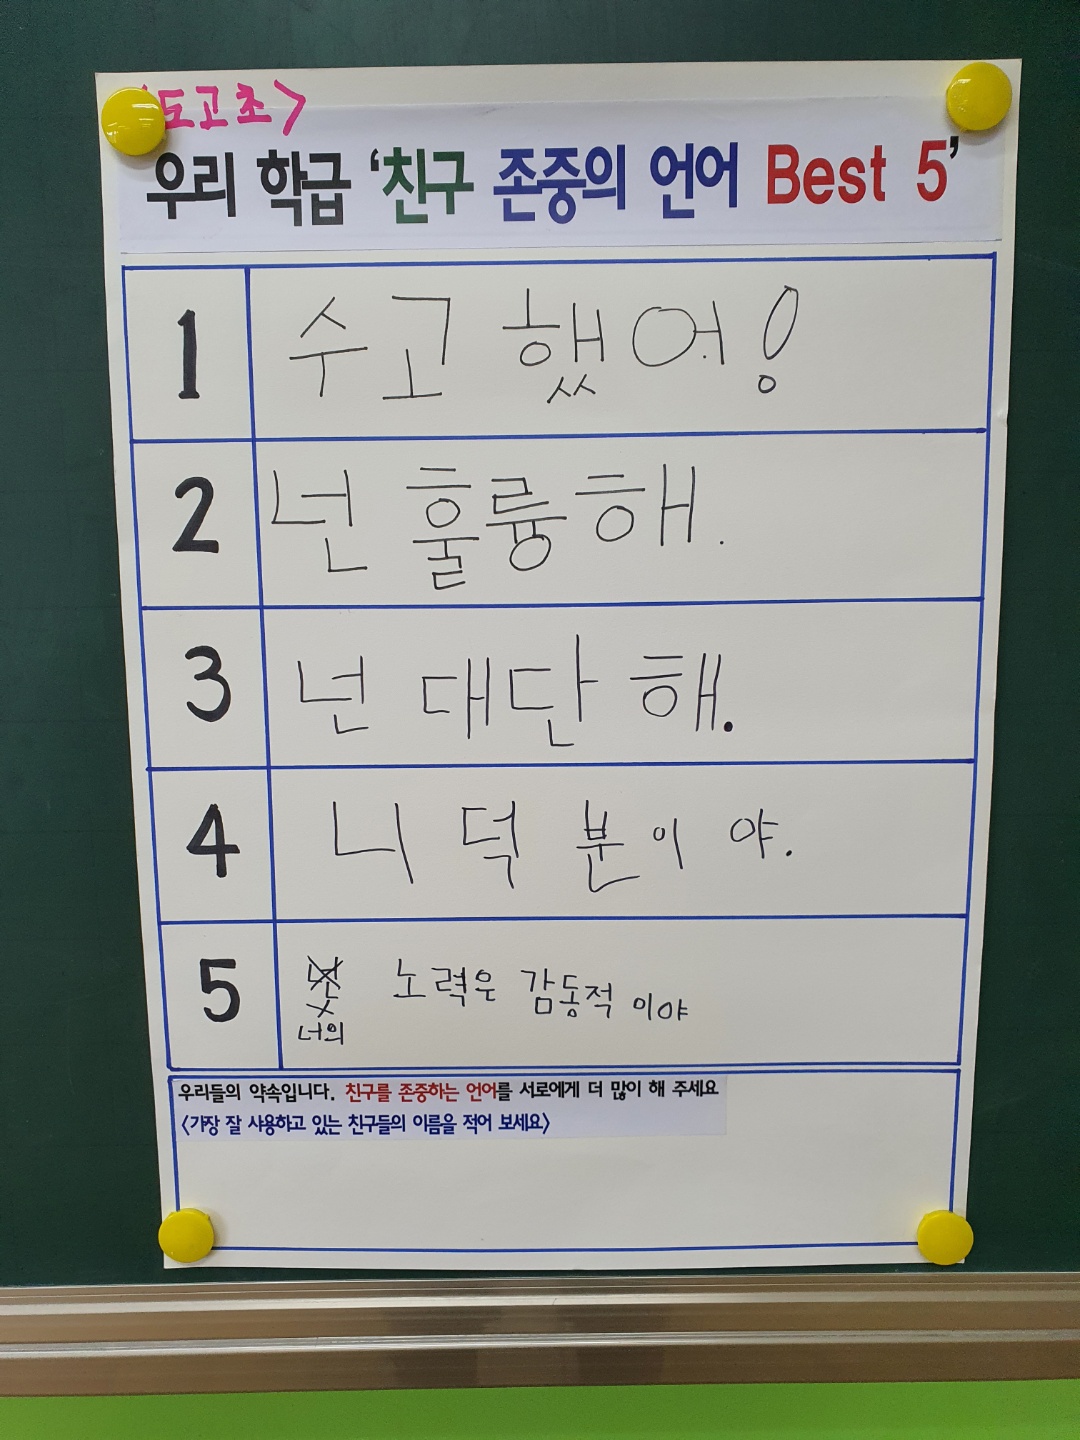 <도고초>
우리 학급 '친구 존중의 언어 Best 5'
1 수고했어!
2 넌 훌륭해.
3 넌 대단해.
4 니 덕분이야.
5 너의 노력은 감동적이야
우리들의 약속입니다. 친구를 존중하는 언어를 서로에게 더 많이 해 주세요
<가장 잘 사용하고 있는 친구들의 이름을 적어 보세요>